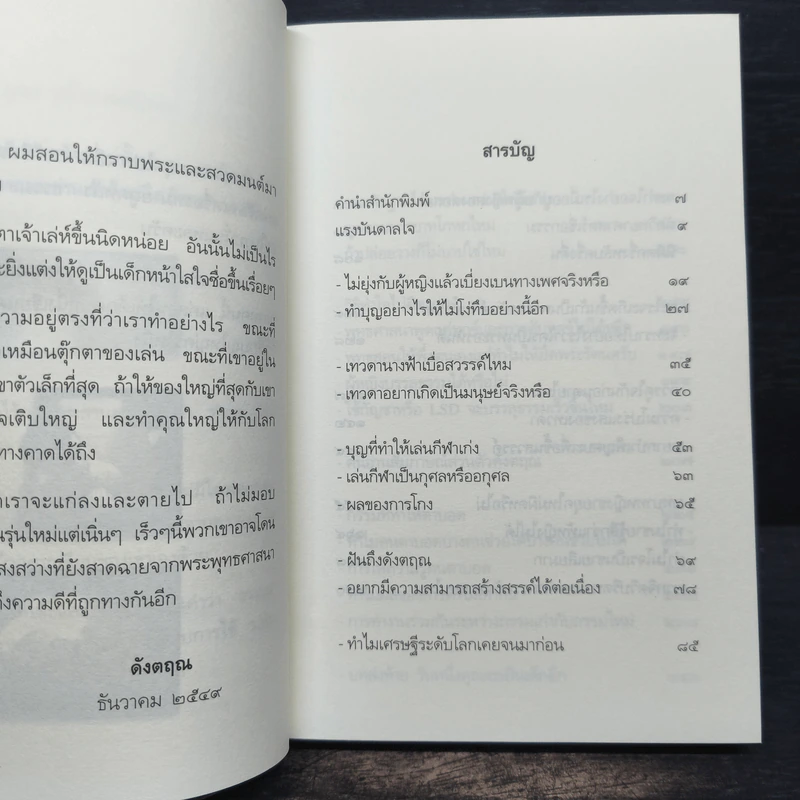 ผมสอนให้กราบพระและสวดมนต์มา
ตาเจ้าเล่ห์ขึ้นนิดหน่อย อันนั้นไม่เป็นไร
ะยิ่งแต่งให้ดูเป็นเด็กหน้าใสใจซื่อขึ้นเรื่อยๆ
วามอยู่ตรงที่ว่าเราทำอย่างไร ขณะที่
เหมือนตุ๊กตาของเล่น ขณะที่เขาอยู่ใน
ขาตัวเล็กที่สุด ถ้าให้ของใหญ่ที่สุดกับเขา
จเติบใหญ่ และทำคุณใหญ่ให้กับโลก
ทางคาดได้ถึง
าเราจะแก่ลงและตายไป ถ้าไม่มอบ
นรุ่นใหม่แต่เนิ่นๆ เร็วๆนี้พวกเขาอาจโดน
สงสว่างที่ยังสาดฉายจากพระพุทธศาสนา
ถึงความดีที่ถูกทางกันอีก
ดังตฤณ
ธันวาคม ๒๕๔๙
สารบัญ
คำนำสำนักพิมพ์ ๗
แรงบันดาลใจ ๙
- ไม่ยุ่งกับผู้หญิงแล้วเบี่ยงเบนทางเพศจริงหรือ ๑๙
- ทำบุญอย่างไรให้ไม่โง่ทึบอย่างนี้อีก ๒๗
- เทวดานางฟ้าเบื่อสวรรค์ไหม ๓๕
- เทวดาอยากเกิดเป็นมนุษย์จริงหรือ ๔๐
- บุญที่ทำให้เล่นกีฬาเก่ง ๕๓
- เล่นกีฬาเป็นกุศลหรืออกุศล ๖๓
- ผลของการโกง ๖๕
- ฝันถึงดังตฤณ ๖๙
- อยากมีความสามารถสร้างสรรค์ได้ต่อเนื่อง ๗๘
- ทำไมเศรษฐีระดับโลกเคยจนมาก่อน ๘๕